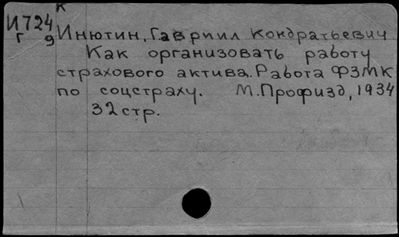 к
И724
г 9
Инютин, Гавриил Кондратьевич.
Как организовать работу
страхового актива. Работа ФЗМК
по соцстраху. М. Профизд, 1934
32 стр.